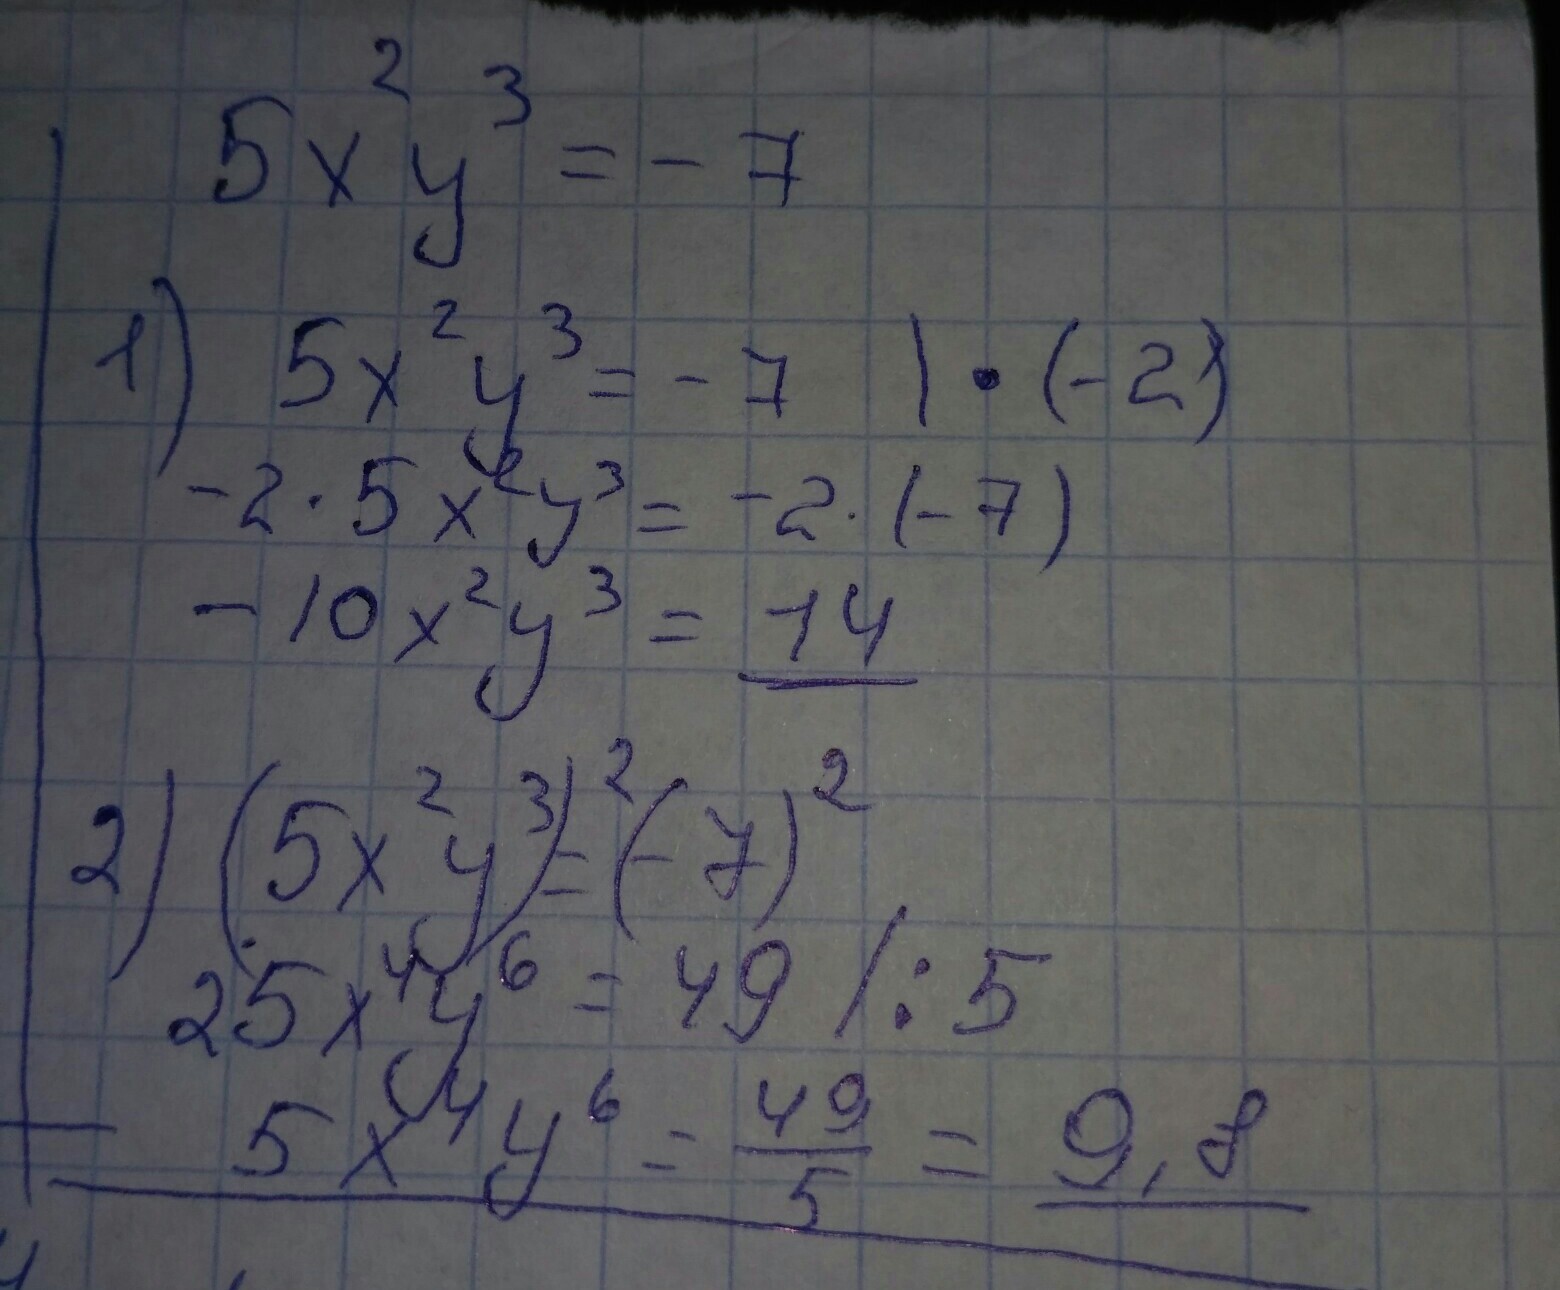 5x²y³ = - 7
1) 5x²y³ = - 7 | • (-2)
-2 · 5x²y³ = -2 · (-7)
- 10x²y³ = 14
2) (5x²y³)² = (-7)²
25x⁴y⁶ = 49 / : 5
5x⁴y⁶ = 49/5 = 9,8